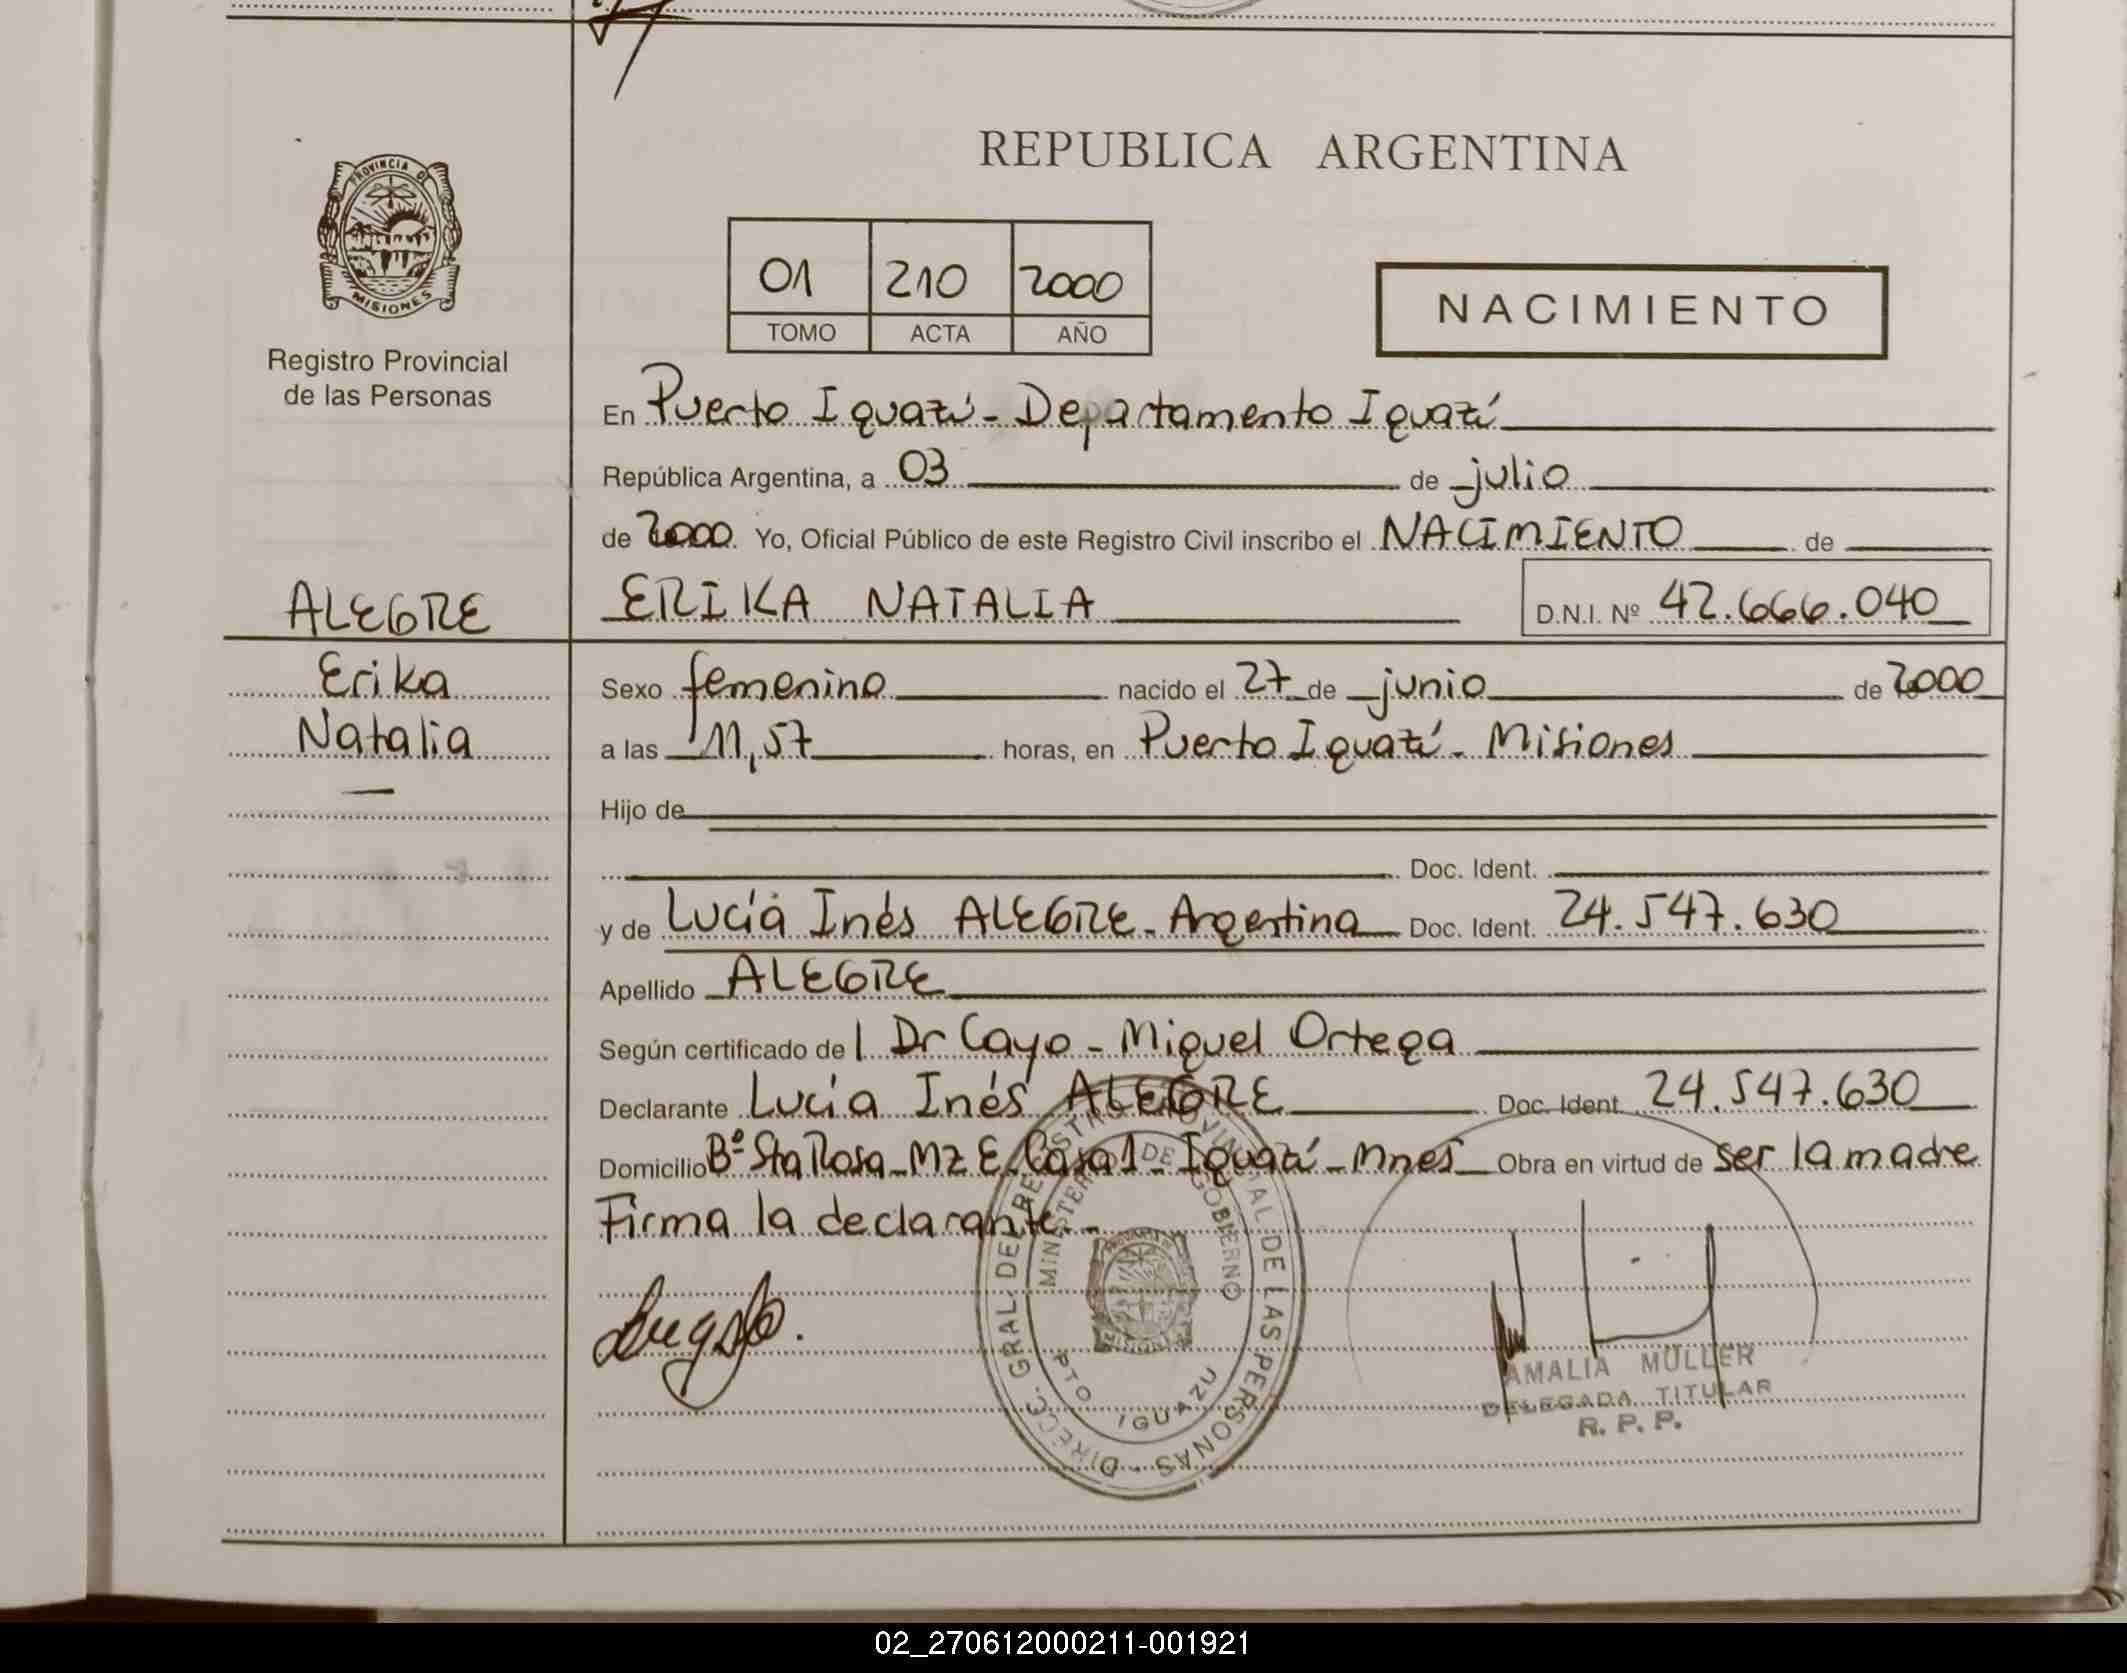 PROVINCIA DE
MISIONES
Registro Provincial
de las Personas
REPUBLICA ARGENTINA
01 210 2000
TOMO ACTA AÑO
NACIMIENTO
En Puerto Iguazú - Departamento Iguazú
República Argentina, a 03 de julio
de 2000 Yo, Oficial Público de este Registro Civil inscribo el NACIMIENTO de
ALEGRE ERIKA NATALIA D.N.I. Nº 42.666.040
Erika Sexo femenino nacido el 27 de junio de 2000
Natalia a las 11,57 horas, en Puerto Iguazú - Misiones
Hijo de
Doc. Ident.
y de Lucía Inés ALEGRE - Argentina Doc. Ident. 24.547.630
Apellido ALEGRE
Según certificado del Dr Cayo - Miguel Ortega
Declarante Lucía Inés ALEGRE Doc. Ident. 24.547.630
Domicilio Bº Sta Rosa - MZ E - Casa 1 - Iguazú - Mnes Obra en virtud de ser la madre
Firma la declarante. -
DIRECC. GRAL. DEL REGISTRO PROVINCIAL DE LAS PERSONAS
MINISTERIO DE GOBIERNO
PTO IGUAZU
AMALIA MULLER
DELEGADA TITULAR
R. P. P.
02_270612000211-001921